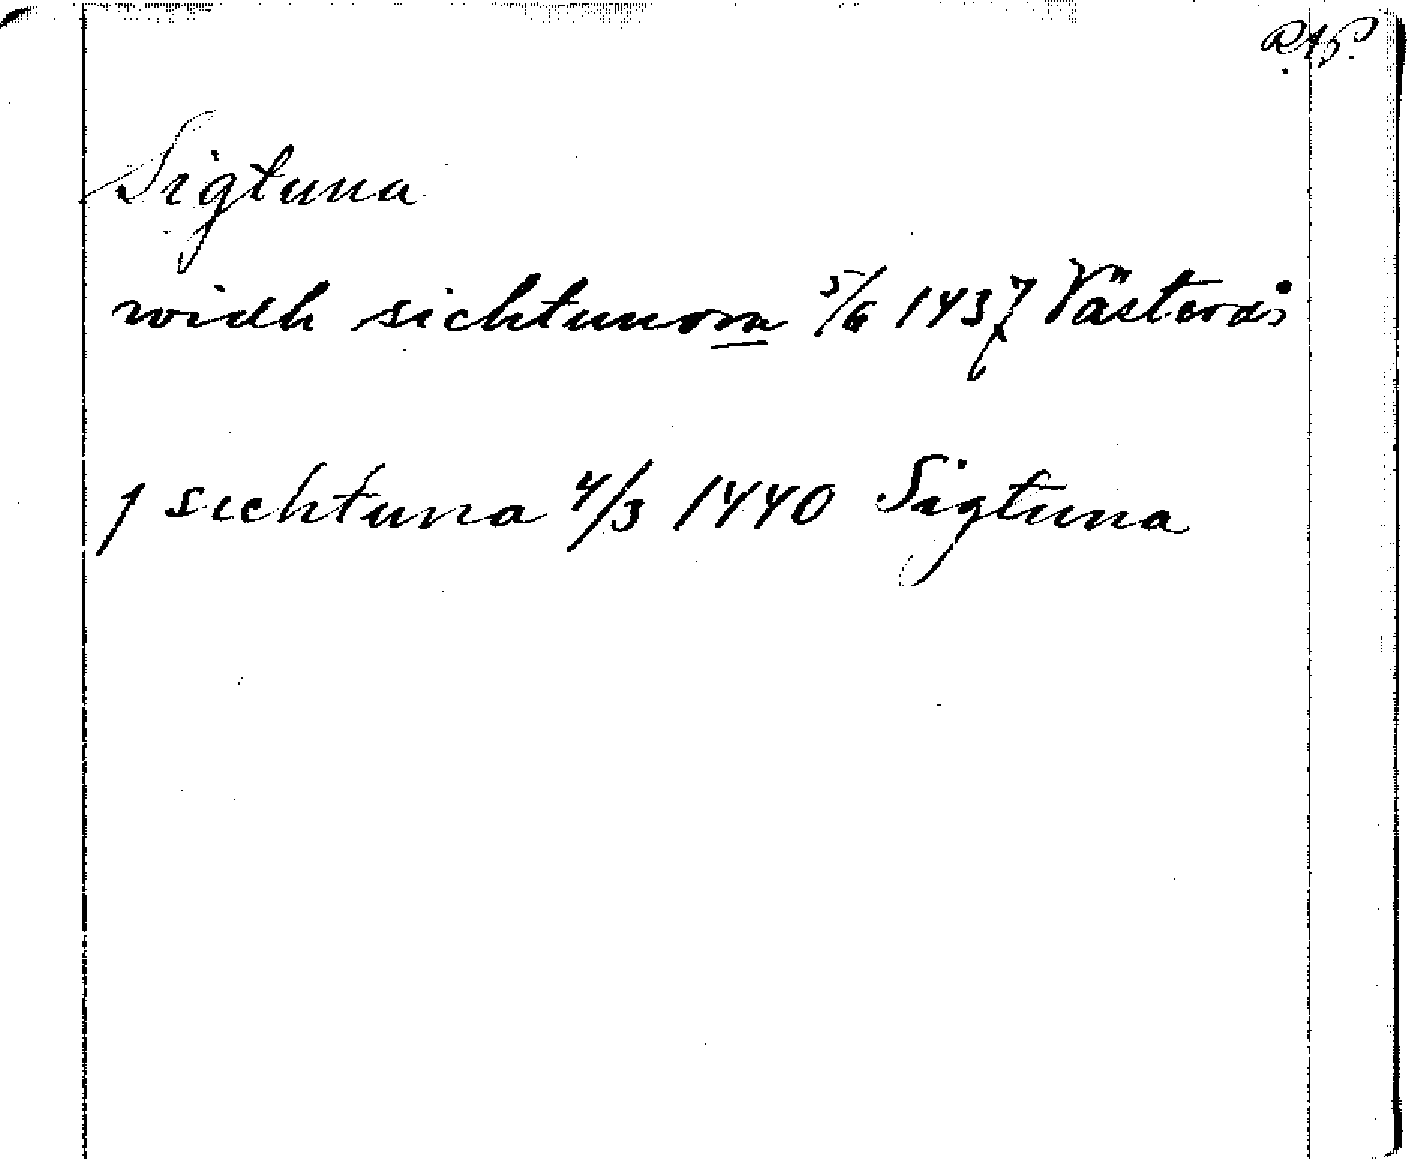 R.A.P.
Sigtuna
widh sichtunom 5/6 1437 Västerås
j sichtuna 4/3 1440 Sigtuna